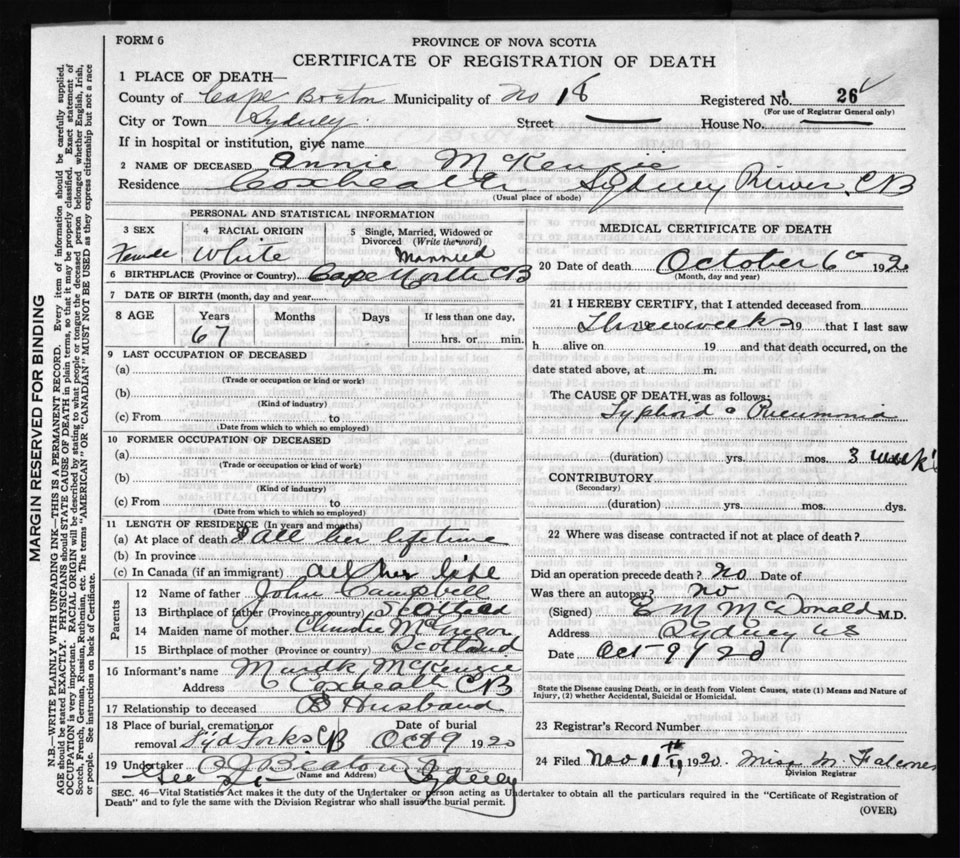 FORM 6
PROVINCE OF NOVA SCOTIA
CERTIFICATE OF REGISTRATION OF DEATH
1 PLACE OF DEATH—
County of Cape Breton Municipality of No 18 Registered No. 26
(For use of Registrar General only)
City or Town Sydney Street House No.
If in hospital or institution, give name
2 NAME OF DECEASED Annie McKenzie
Residence Coxheath Sydney River, CB
(Usual place of abode)
PERSONAL AND STATISTICAL INFORMATION
3 SEX 4 RACIAL ORIGIN 5 Single, Married, Widowed or Divorced (Write the word)
Female White Married
6 BIRTHPLACE (Province or Country) Cape North CB
7 DATE OF BIRTH (month, day and year)
8 AGE Years Months Days If less than one day,
67 hrs. or min.
9 LAST OCCUPATION OF DECEASED
(a)
(Trade or occupation or kind or work)
(b)
(Kind of industry)
(c) From to
(Date from which to which so employed)
10 FORMER OCCUPATION OF DECEASED
(a)
(Trade or occupation or kind or work)
(b)
(Kind of industry)
(c) From to
(Date from which to which so employed)
11 LENGTH OF RESIDENCE (In years and months)
(a) At place of death all her lifetime
(b) In province
(c) In Canada (if an immigrant) all her life
Parents
12 Name of father John Campbell
13 Birthplace of father (Province or country) Scotland
14 Maiden name of mother Christie McGregor
15 Birthplace of mother (Province or country) Scotland
16 Informant's name Murdk McKenzie
Address Coxheath CB
17 Relationship to deceased Husband
18 Place of burial, cremation or removal Syd Forks CB Date of burial Oct 9 1920
19 Undertaker A J Beaton Sydney
(Name and Address)
MEDICAL CERTIFICATE OF DEATH
20 Date of death October 6th 1920
(Month, day and year)
21 I HEREBY CERTIFY, that I attended deceased from
Three weeks 19 that I last saw
h alive on 19 and that death occurred, on the
date stated above, at m.
The CAUSE OF DEATH, was as follows:
Typhoid Pneumonia
(duration) yrs. mos. 3 weeks
CONTRIBUTORY
(Secondary)
(duration) yrs. mos. dys.
22 Where was disease contracted if not at place of death?
Did an operation precede death? No Date of
Was there an autopsy? No
(Signed) E M McDonald M.D.
Address Sydney NS
Date Oct 9/20
State the Disease causing Death, or in death from Violent Causes, state (1) Means and Nature of
Injury, (2) whether Accidental, Suicidal or Homicidal.
23 Registrar's Record Number
24 Filed Nov 11th 1920. Miss M
Division Registrar
SEC. 46—Vital Statistics Act makes it the duty of the Undertaker or person acting as Undertaker to obtain all the particulars required in the "Certificate of Registration of
Death" and to fyle the same with the Division Registrar who shall issue the burial permit.
(OVER)
MARGIN RESERVED FOR BINDING
N.B.—WRITE PLAINLY WITH UNFADING INK—THIS IS A PERMANENT RECORD. Every item of information should be carefully supplied.
AGE should be stated EXACTLY. PHYSICIANS should STATE CAUSE OF DEATH in plain terms, so that it may be properly classified. Exact statement of
OCCUPATION is very important. RACIAL ORIGIN will be described by stating to what people or tongue the deceased person belonged whether English, Irish,
Scotch, French, German, Russian, Ruthenian, etc. The terms "AMERICAN" OR "CANADIAN" MUST NOT BE USED as they express citizenship but not a race
or people. See instructions on back of Certificate.